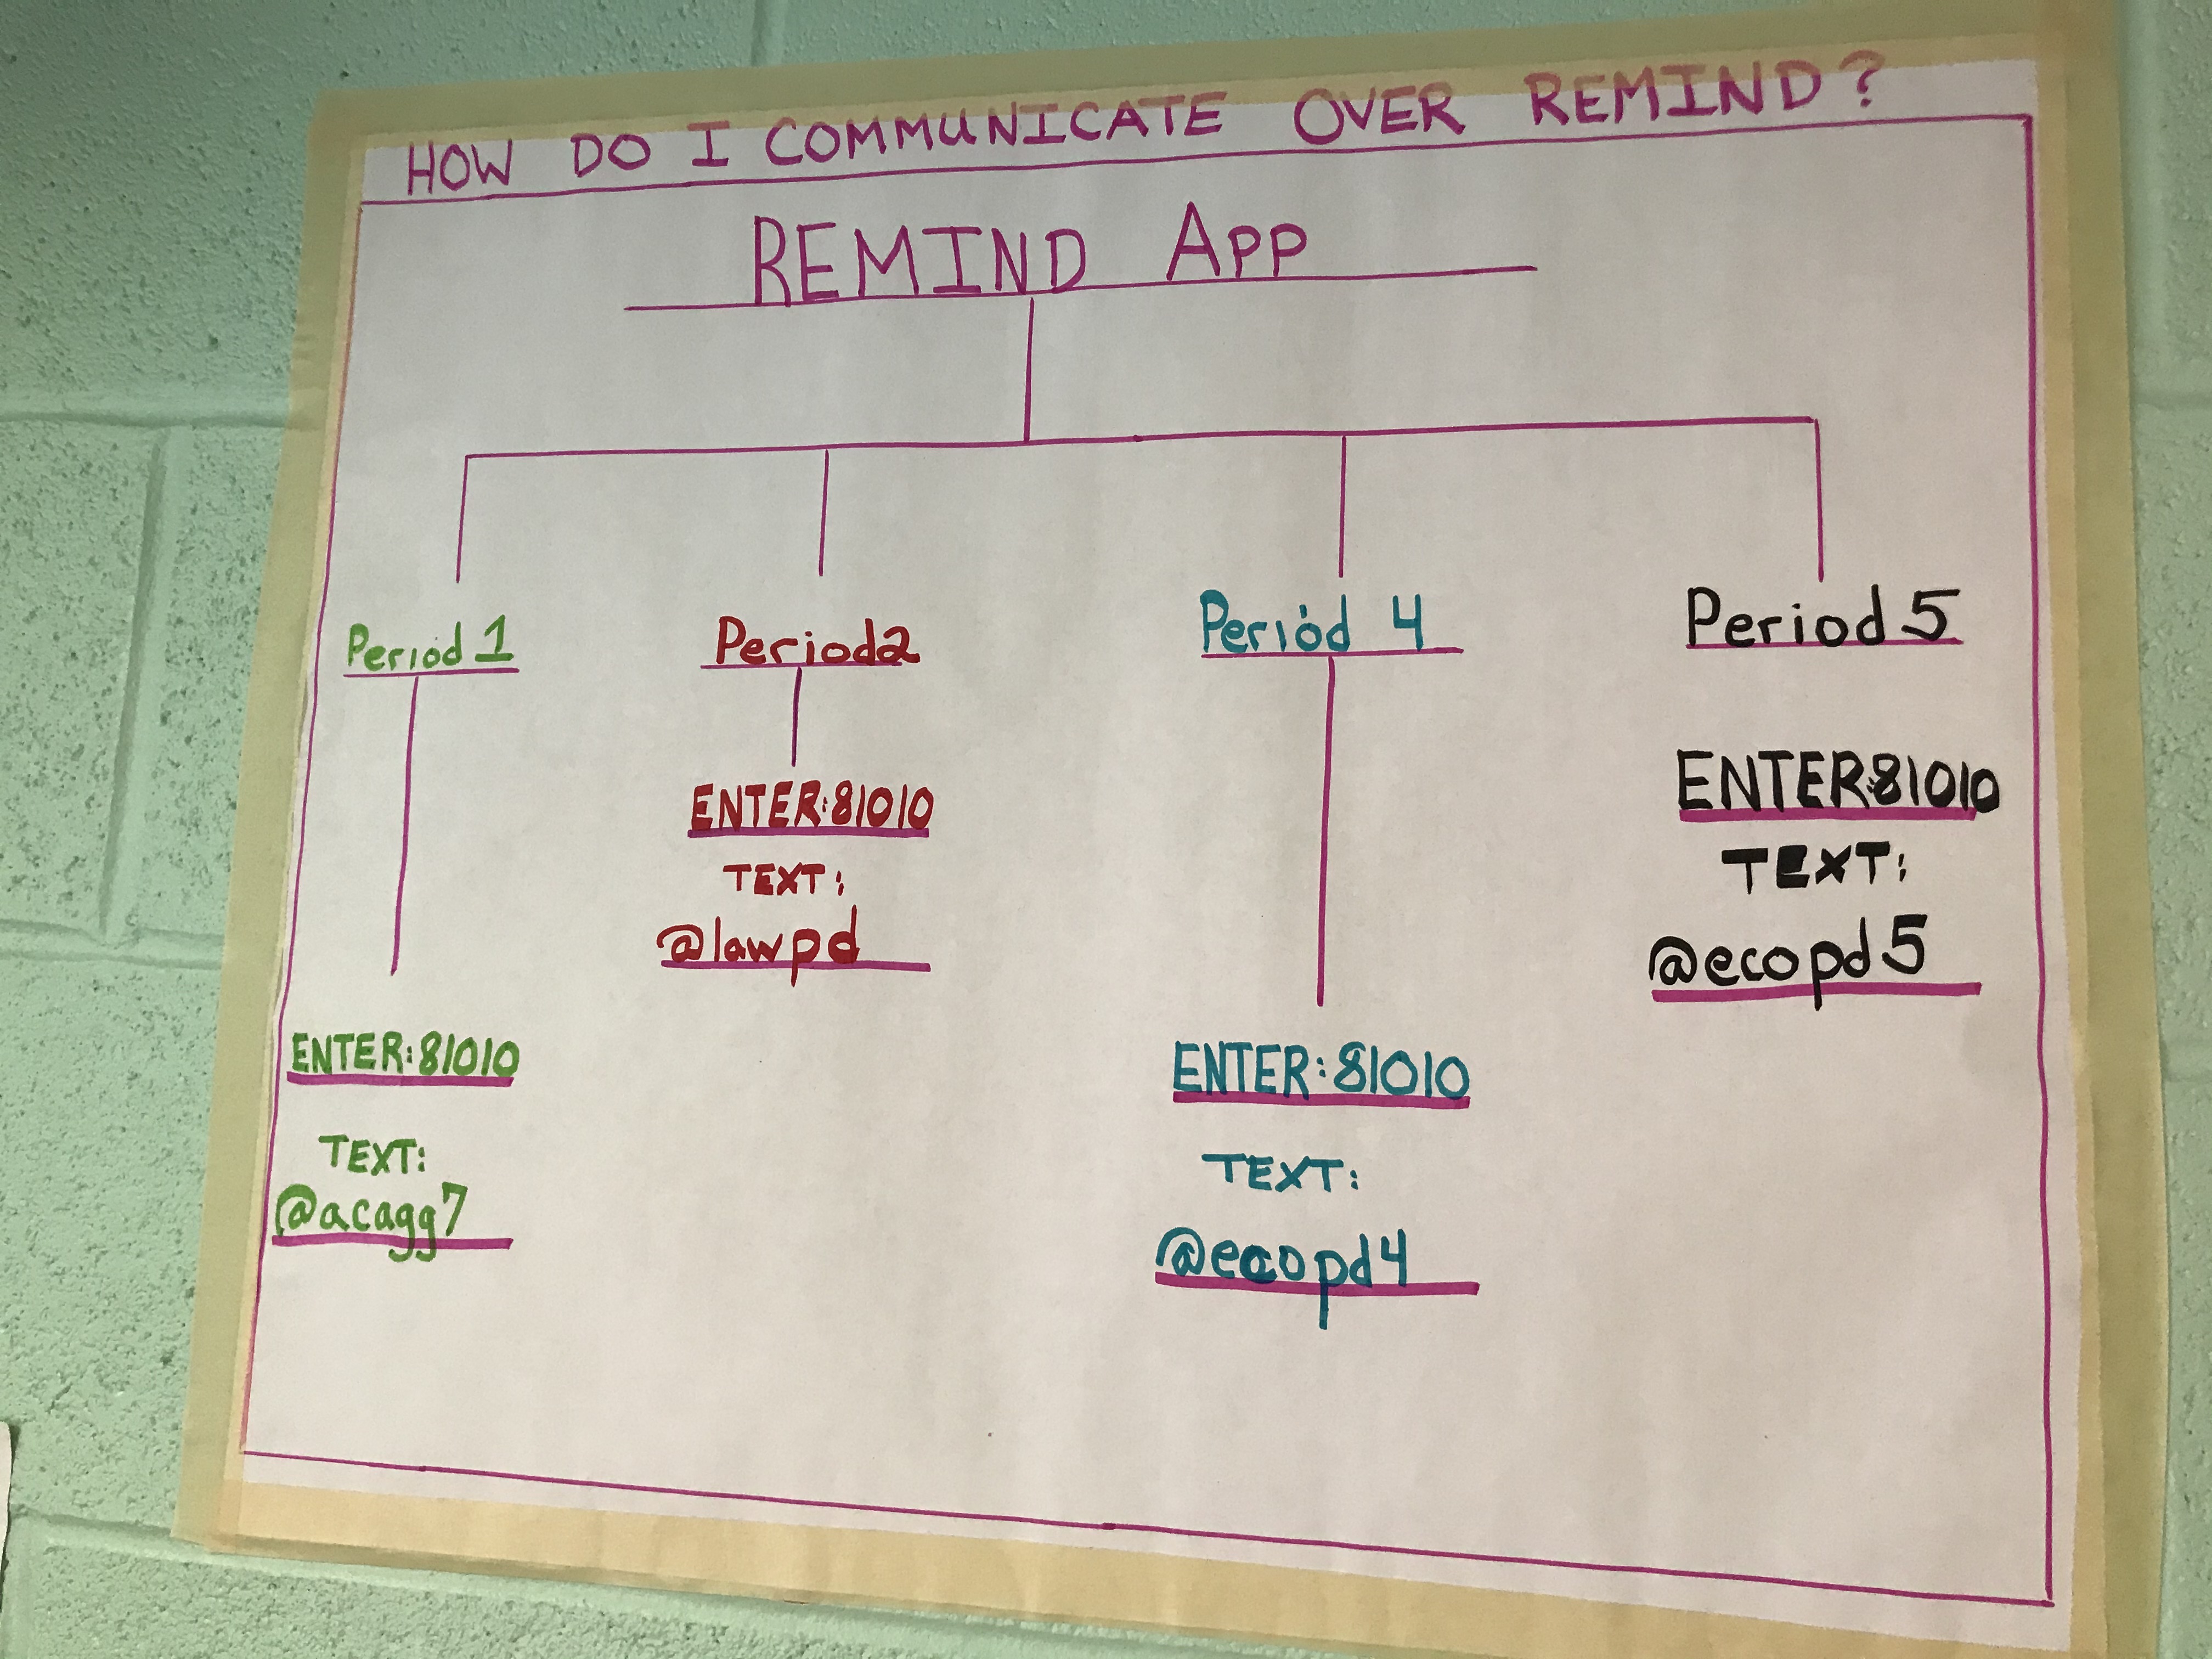 HOW DO I COMMUNICATE OVER REMIND?
REMIND APP
Period 1
ENTER: 81010
TEXT:
@acagg7
Period 2
ENTER: 81010
TEXT:
@lawpd
Period 4
ENTER: 81010
TEXT:
@ecopd4
Period 5
ENTER: 81010
TEXT:
@ecopd5